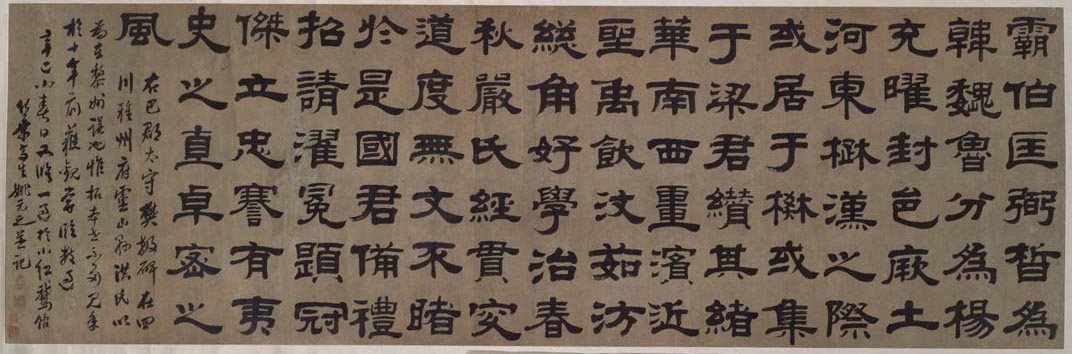 霸伯匡弼晳為
韓魏魯分為楊
充曜封邑厥土
河東楙漢之際
或居于楙或集
于梁君纉其緒
華南西畺濱近
聖禹飲汶茹汸
總角好學治春
秋嚴氏經貫究
道度無文不睹
於是國君備禮
招請濯冕題冠
傑立忠謇有夷
史之直卓密之
風
右巴郡太守樊敏碑在四
川雅州府蘆山縣洪氏以
為在黎州誤也惟拓本世不多見余
於十年前獲觀嘗臨數過
辛巳小春日又臨一過於小紅鵞館
竹葉亭生姚元之並記